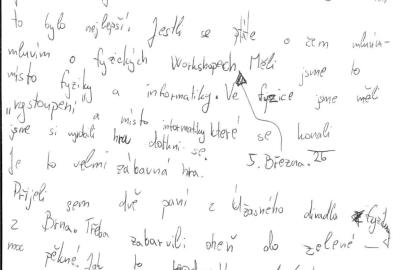 to bylo nejlepší. Jestli se ptáte o čem mluvím-
mluvím o fyzických Workshopech Měli jsme to
místo fyziky a informatiky. Ve fyzice jsme měli
"vystoupení" a místo informatiky které se konali
jsme si vydali hra dotkni se. 5. Března. 26
Je to velmi zábavná hra.
Přijeli sem dvě paní z Úžasného divadla fyziky
z Brna. Třeba zabarvili oheň do zelené
moc pěkné. to